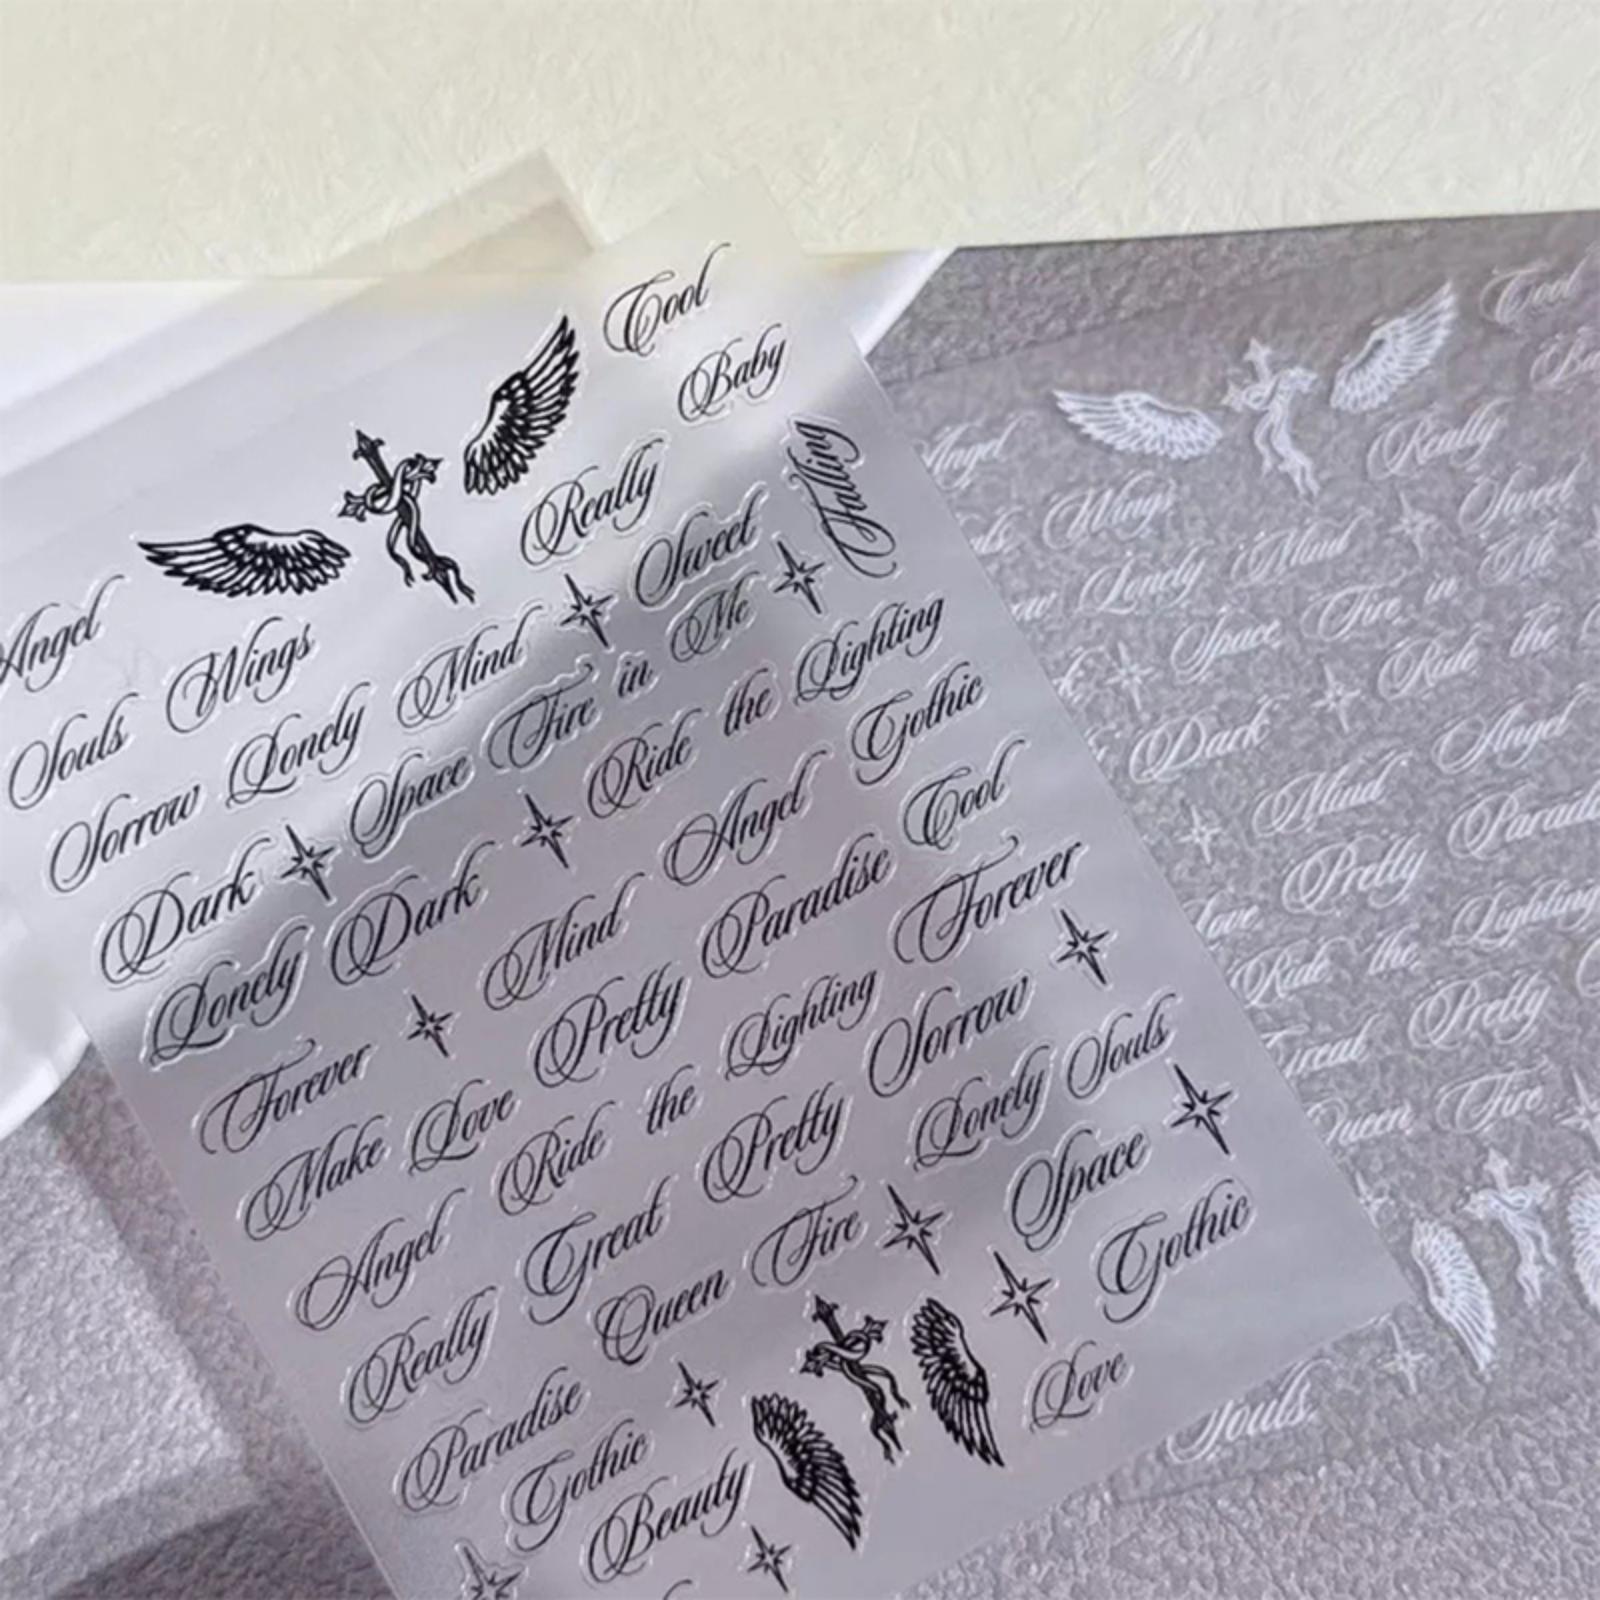 Cool
Baby
Falling
Really
Sweet
Angel
Souls Wings
Sorrow Lonely Mind
Space Fire in Me
Dark
Ride the Lighting
Lonely Dark
Mind Angel Gothic
Forever
Pretty Paradise Cool
Make Love
Ride the Lighting Forever
Angel
Great Pretty Sorrow
Really
Queen Fire
Lonely Souls
Paradise
Space
Gothic
Gothic
Beauty
Love
Cool
Angel
Really
Wings
Sweet
Lonely Mind
Space Fire in Me
Ride the
Dark
Mind Angel
Pretty
Love
Ride the Lighting
Great Pretty
Queen Fire
Souls